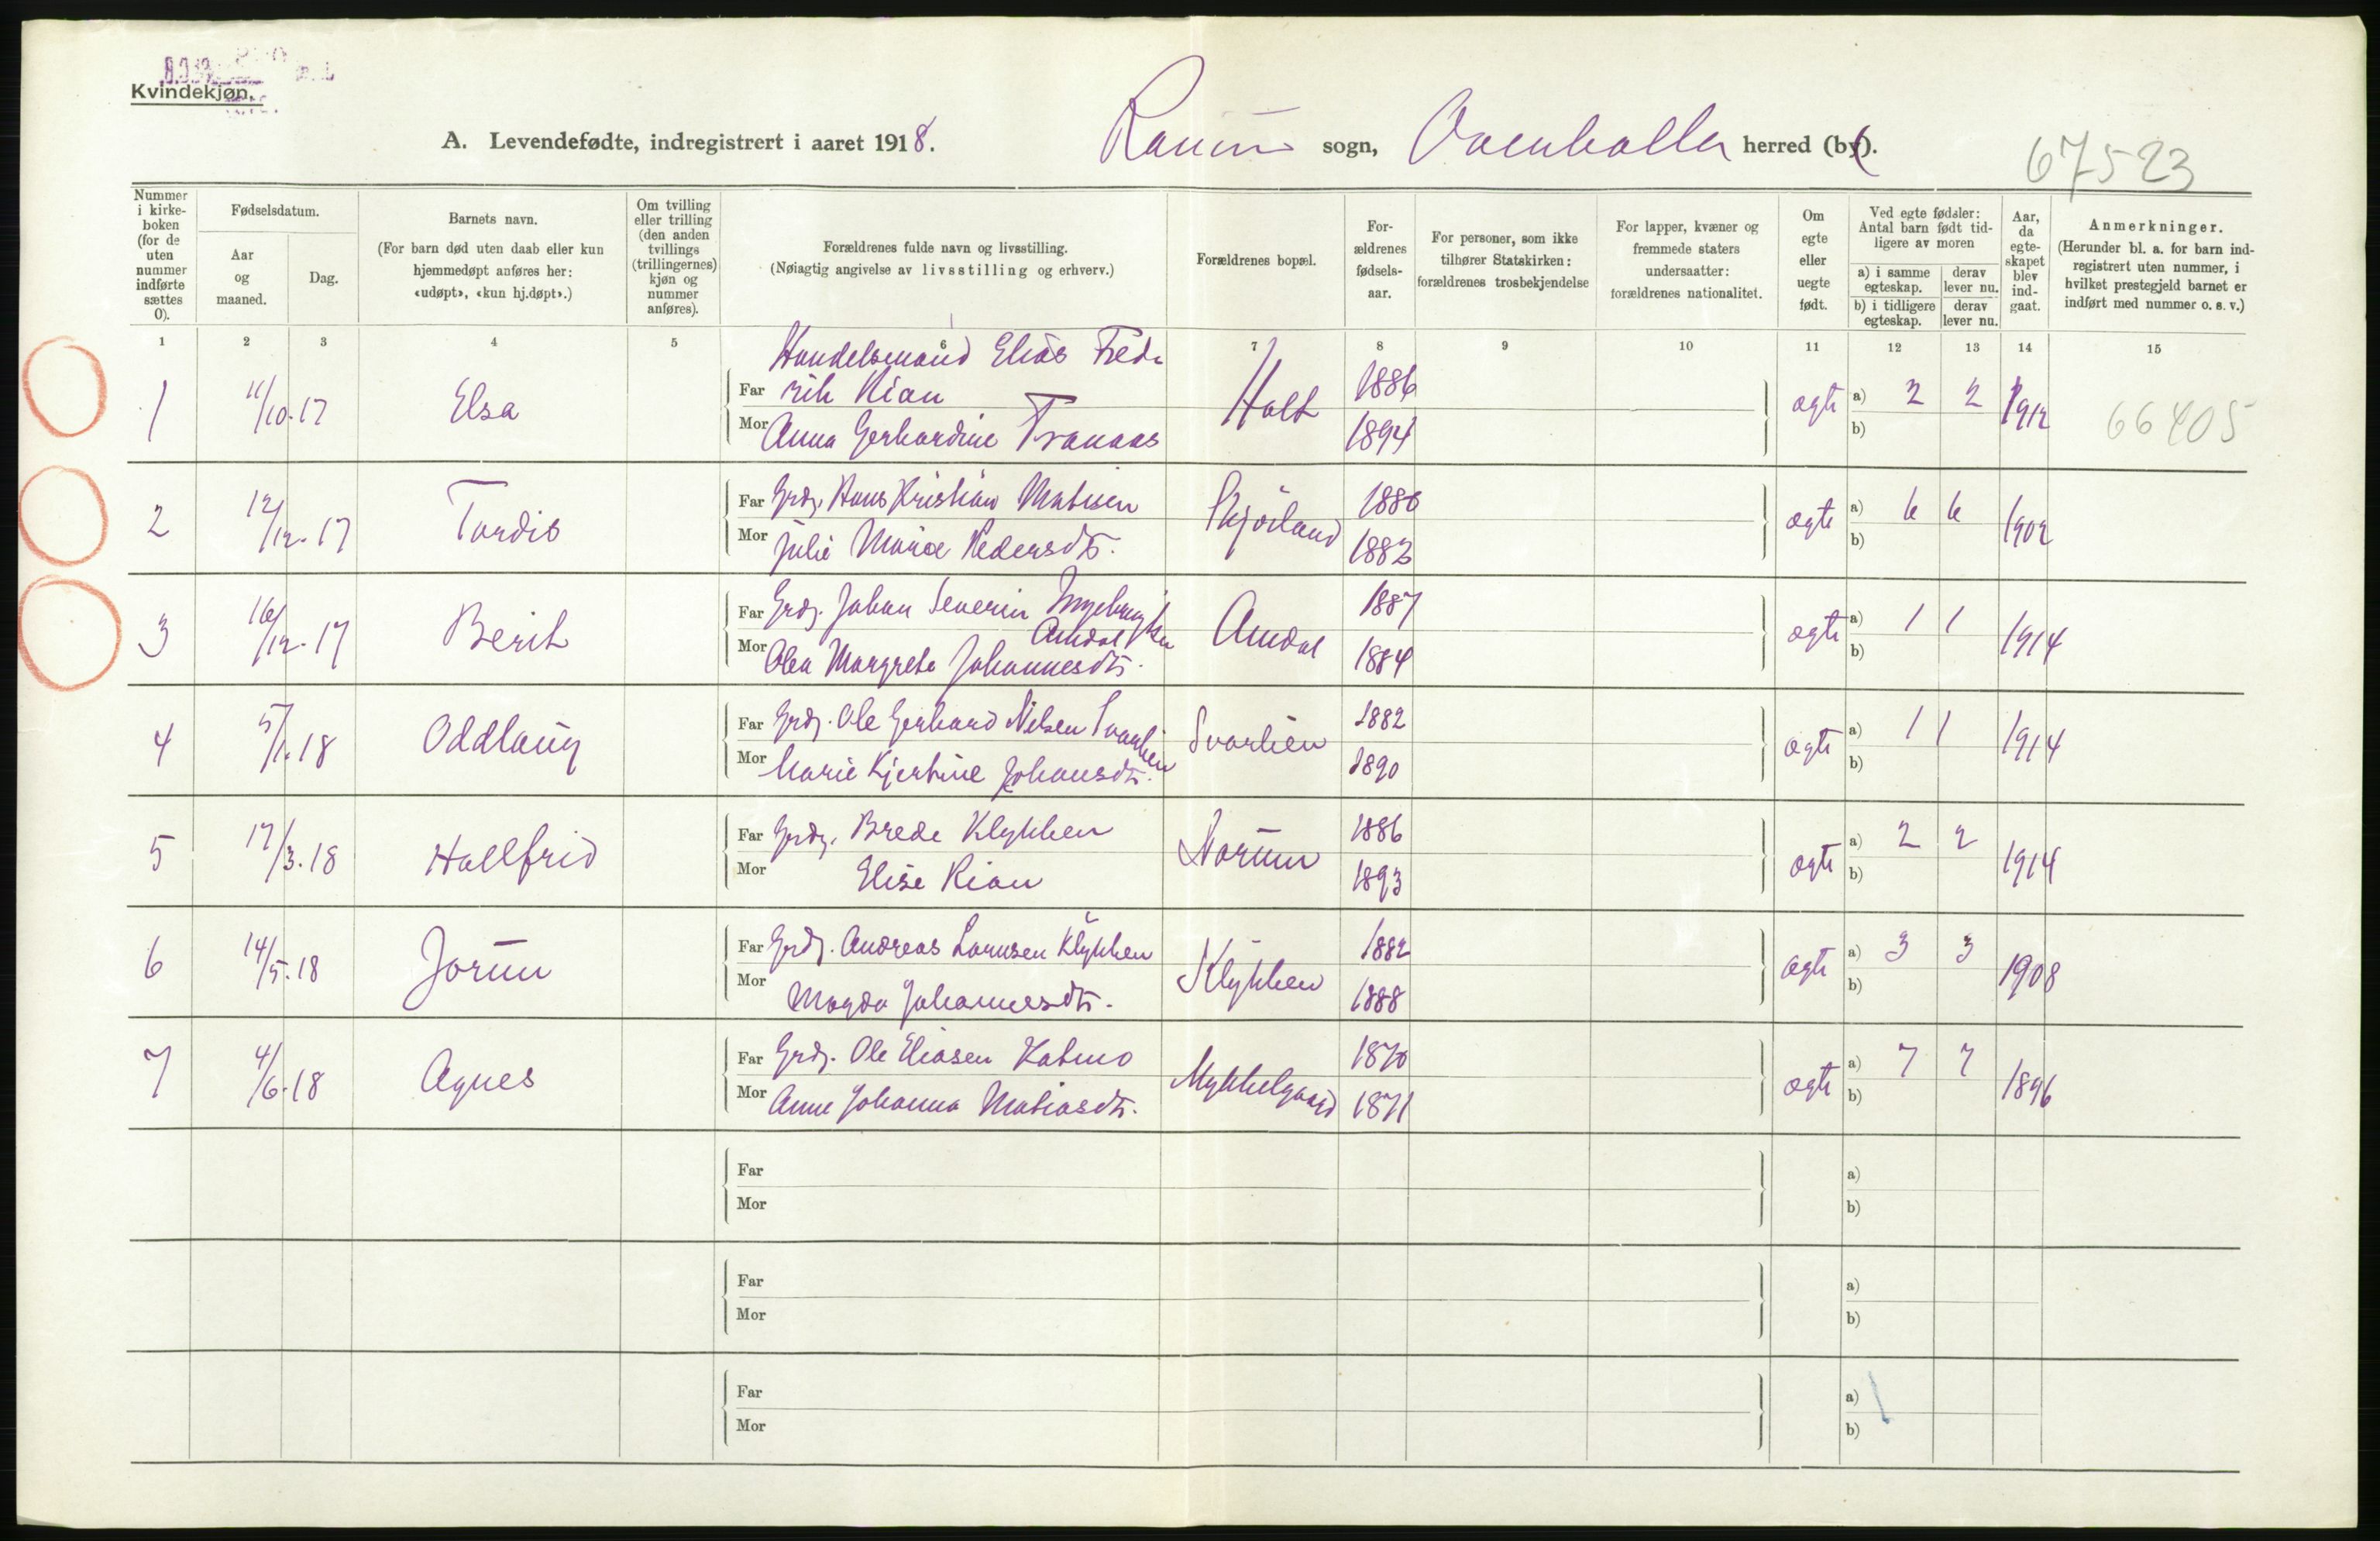 Kvindekjøn.
A. Levendefødte, indregistrert i aaret 1918. Ranum sogn, Overhalla herred (by).
67523
Nummer i kirke-boken (for de uten nummer indførte sættes 0).
Fødselsdatum.
Aar og maaned.
Dag.
Barnets navn.
(For barn død uten daab eller kun hjemmedøpt anføres her: «udøpt», «kun hj.døpt».)
Om tvilling eller trilling (den anden tvillings (trillingernes) kjøn og nummer anføres).
Forældrenes fulde navn og livsstilling.
(Nøiagtig angivelse av livsstilling og erhverv.)
Forældrenes bopæl.
For-ældrenes fødsels-aar.
For personer, som ikke tilhører Statskirken: forældrenes trosbekjendelse
For lapper, kvæner og fremmede staters undersaatter: forældrenes nationalitet.
Om egte eller uegte født.
Ved egte fødsler: Antal barn født tid-ligere av moren
a) i samme egteskap.
derav lever nu.
b) i tidligere egteskap.
derav lever nu.
Aar, da egte-skapet blev ind-gaat.
Anmerkninger.
(Herunder bl. a. for barn ind-registrert uten nummer, i hvilket prestegjeld barnet er indført med nummer o. s. v.)
1 2 3 4 5 6 7 8 9 10 11 12 13 14 15
Handelsmand Elias Fred-
1 11/10.17 Elsa Far rik Rian Holt 1886 egte a) 2 2 1912 66405
Mor Anna Gerhardine Tranaas 1894 b)
2 12/12.17 Tordis Far Grdj. Hans Kristian Matisen Skjørland 1880 egte a) 6 6 1902
Mor Julie Marie Pedersdtr. 1883 b)
3 16/12.17 Berit Far Grdj. Johan Severin Ingebrigtsen Amdal 1887 egte a) 1 1 1914
Amdal
Mor Olea Margrete Johannesdtr. 1884 b)
4 5/1.18 Oddlaug Far Grdj. Ole Gerhard Nilsen Svarlien Svarlien 1882 egte a) 1 1 1914
Mor Marie Kjerstine Johansdtr. 1890 b)
5 17/3.18 Hallfrid Far Grdj. Brede Klykken Norum 1886 egte a) 2 2 1914
Mor Elise Rian 1893 b)
6 14/5.18 Jorun Far Grdj. Andreas Larusen Klykken Klykken 1882 egte a) 3 3 1908
Mor Magda Johannesdtr. 1888 b)
7 4/6.18 Agnes Far Grdj. Ole Eliasen Katmo Mykkelgaard 1870 egte a) 7 7 1896
Mor Anne Johanna Matiasdtr. 1871 b)
Far a)
Mor b)
Far a)
Mor b)
Far a)
Mor b)